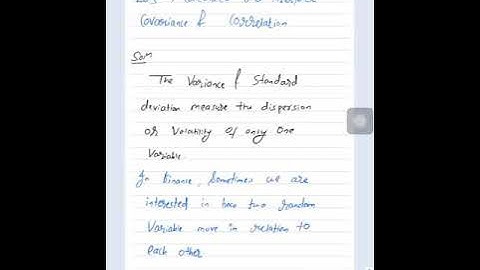 Covariance & Correlation
Soln
The Variance & Standard
deviation measure the dispersion
or Volatility of only one
Variable.
In Finance, Sometimes we are
interested in how two random
Variable move in relation to
Each other